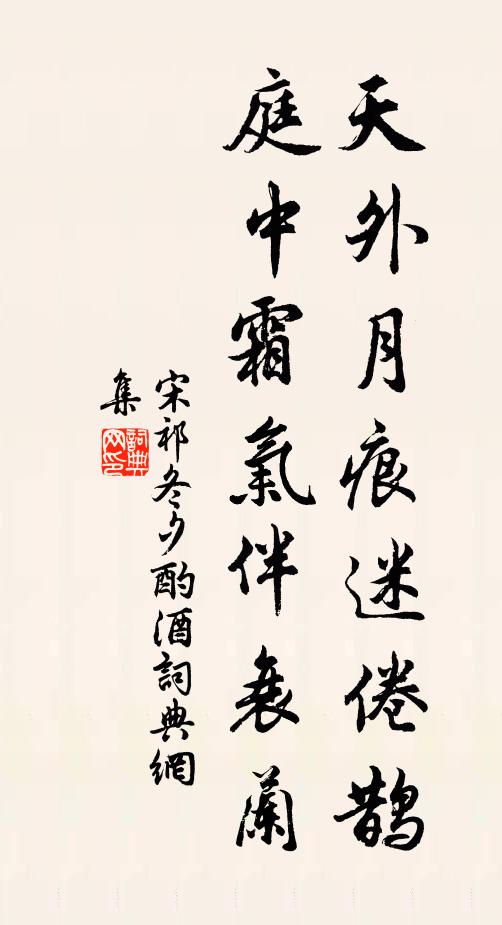 天外月痕迷倦鵲
庭中霜氣伴衰蘭
宋祁冬夕酌酒詞典網
集
詞典网印